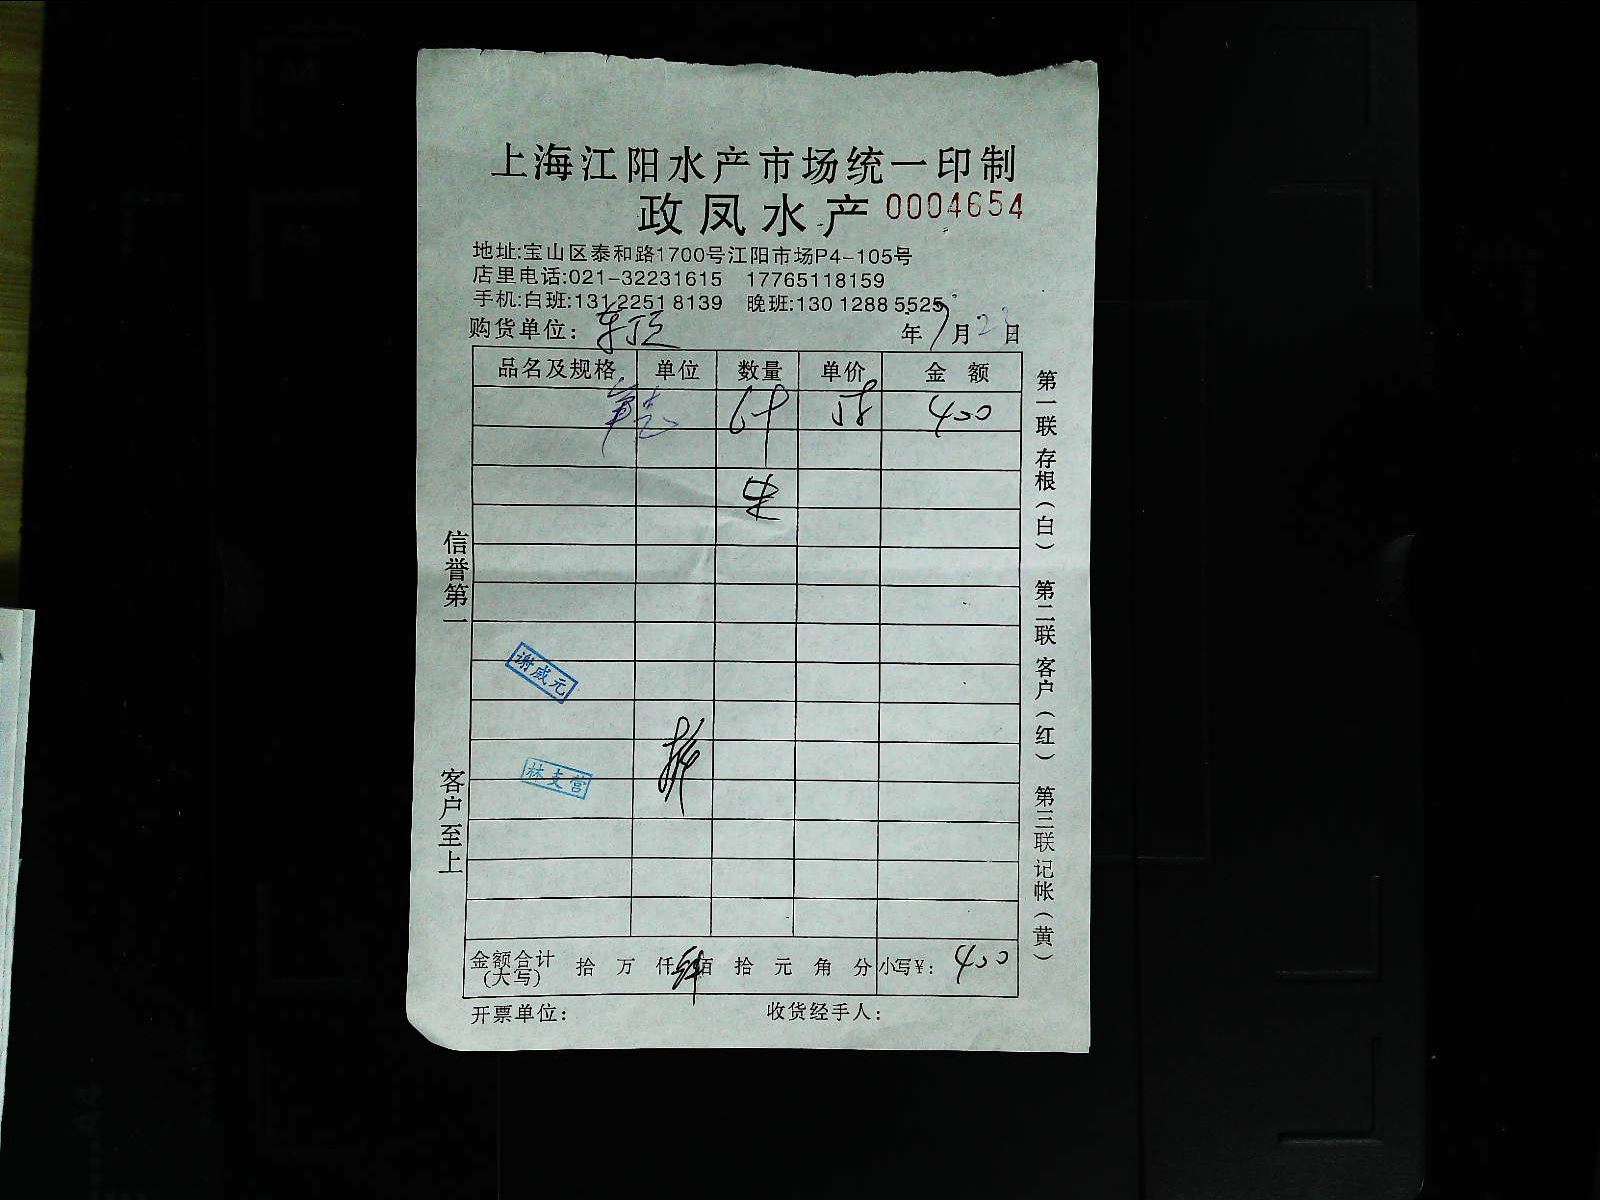 上海江阳水产市场统一印制
政凤水产 0004654
地址:宝山区泰和路1700号江阳市场P4-105号
店里电话:021-32231615 17765118159
手机:白班:131 2251 8139 晚班:130 1288 5525
购货单位: 年 9月23日
品名及规格 单位 数量 单价 金额
400
谢威元
林支营
金额合计(大写) 拾 万 仟 佰 拾 元 角 分 小写¥: 400
开票单位: 收货经手人:
信誉第一 客户至上
第一联 存根(白) 第二联 客户(红) 第三联 记帐(黄)